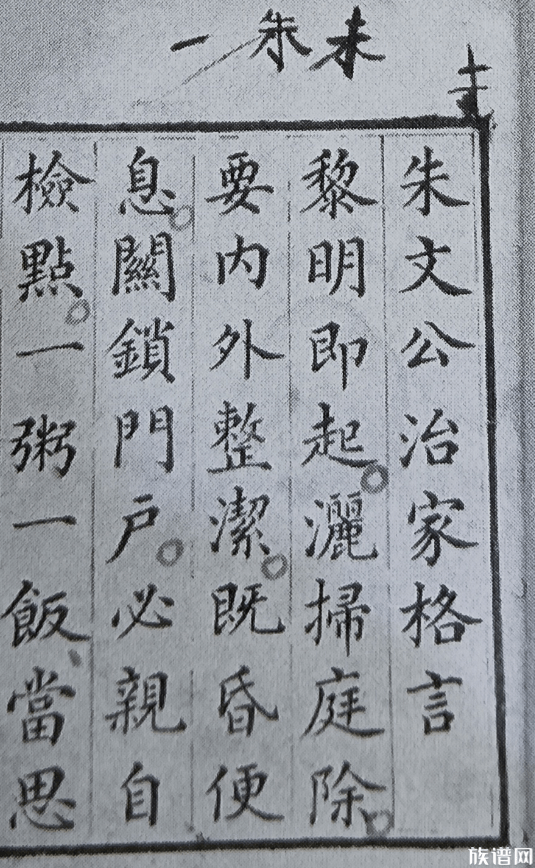 一朱未
朱文公治家格言
黎明即起灑掃庭除
要內外整潔既昏便
息關鎖門戶必親自
檢點一粥一飯當思
族谱网